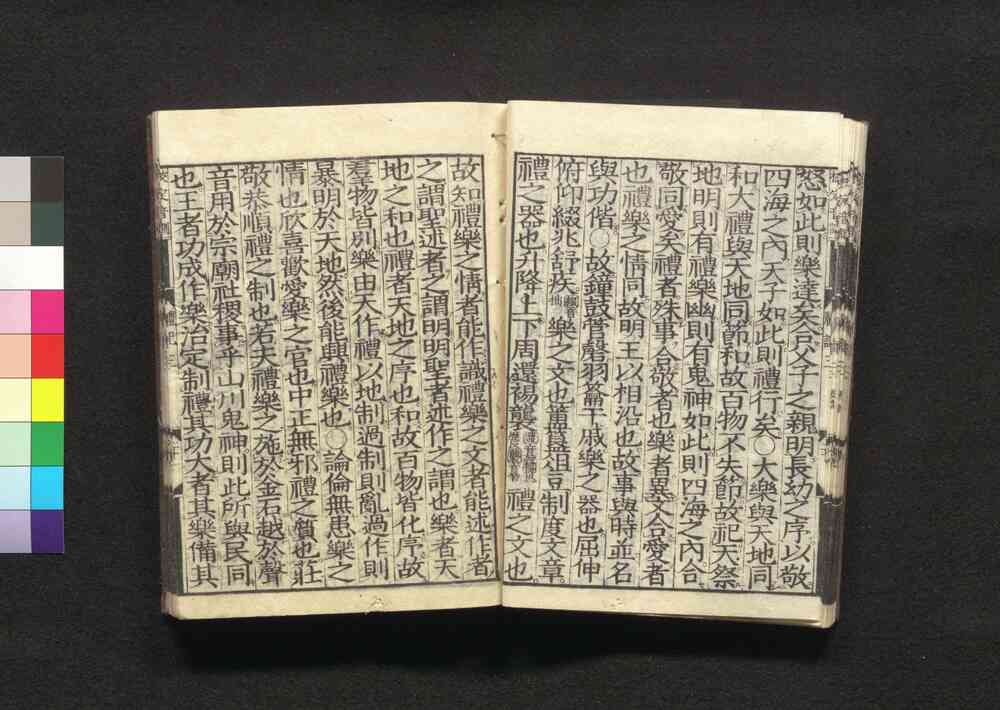 怒如此則樂達矣合父子之親明長幼之序以敬
四海之內天子如此則禮行矣○大樂與天地同
和大禮與天地同節和故百物不失節故祀天祭
地明則有禮樂幽則有鬼神如此則四海之內合
敬同愛矣禮者殊事合敬者也樂者異文合愛者
也禮樂之情同故明王以相沿也故事與時並名
與功偕○故鐘鼓管磬羽籥干戚樂之器也屈伸
俯仰綴兆舒疾樂之文也簠簋俎豆制度文章
禮之器也升降上下周還裼襲禮之文也
故知禮樂之情者能作識禮樂之文者能述作者
之謂聖述者之謂明明聖者述作之謂也樂者天
地之和也禮者天地之序也和故百物皆化序故
羣物皆別樂由天作禮以地制過制則亂過作則
暴明於天地然後能興禮樂也○論倫無患樂之
情也欣喜歡愛樂之官也中正無邪禮之質也莊
敬恭順禮之制也若夫禮樂之施於金石越於聲
音用於宗廟社稷事乎山川鬼神則此所與民同
也王者功成作樂治定制禮其功大者其樂備其